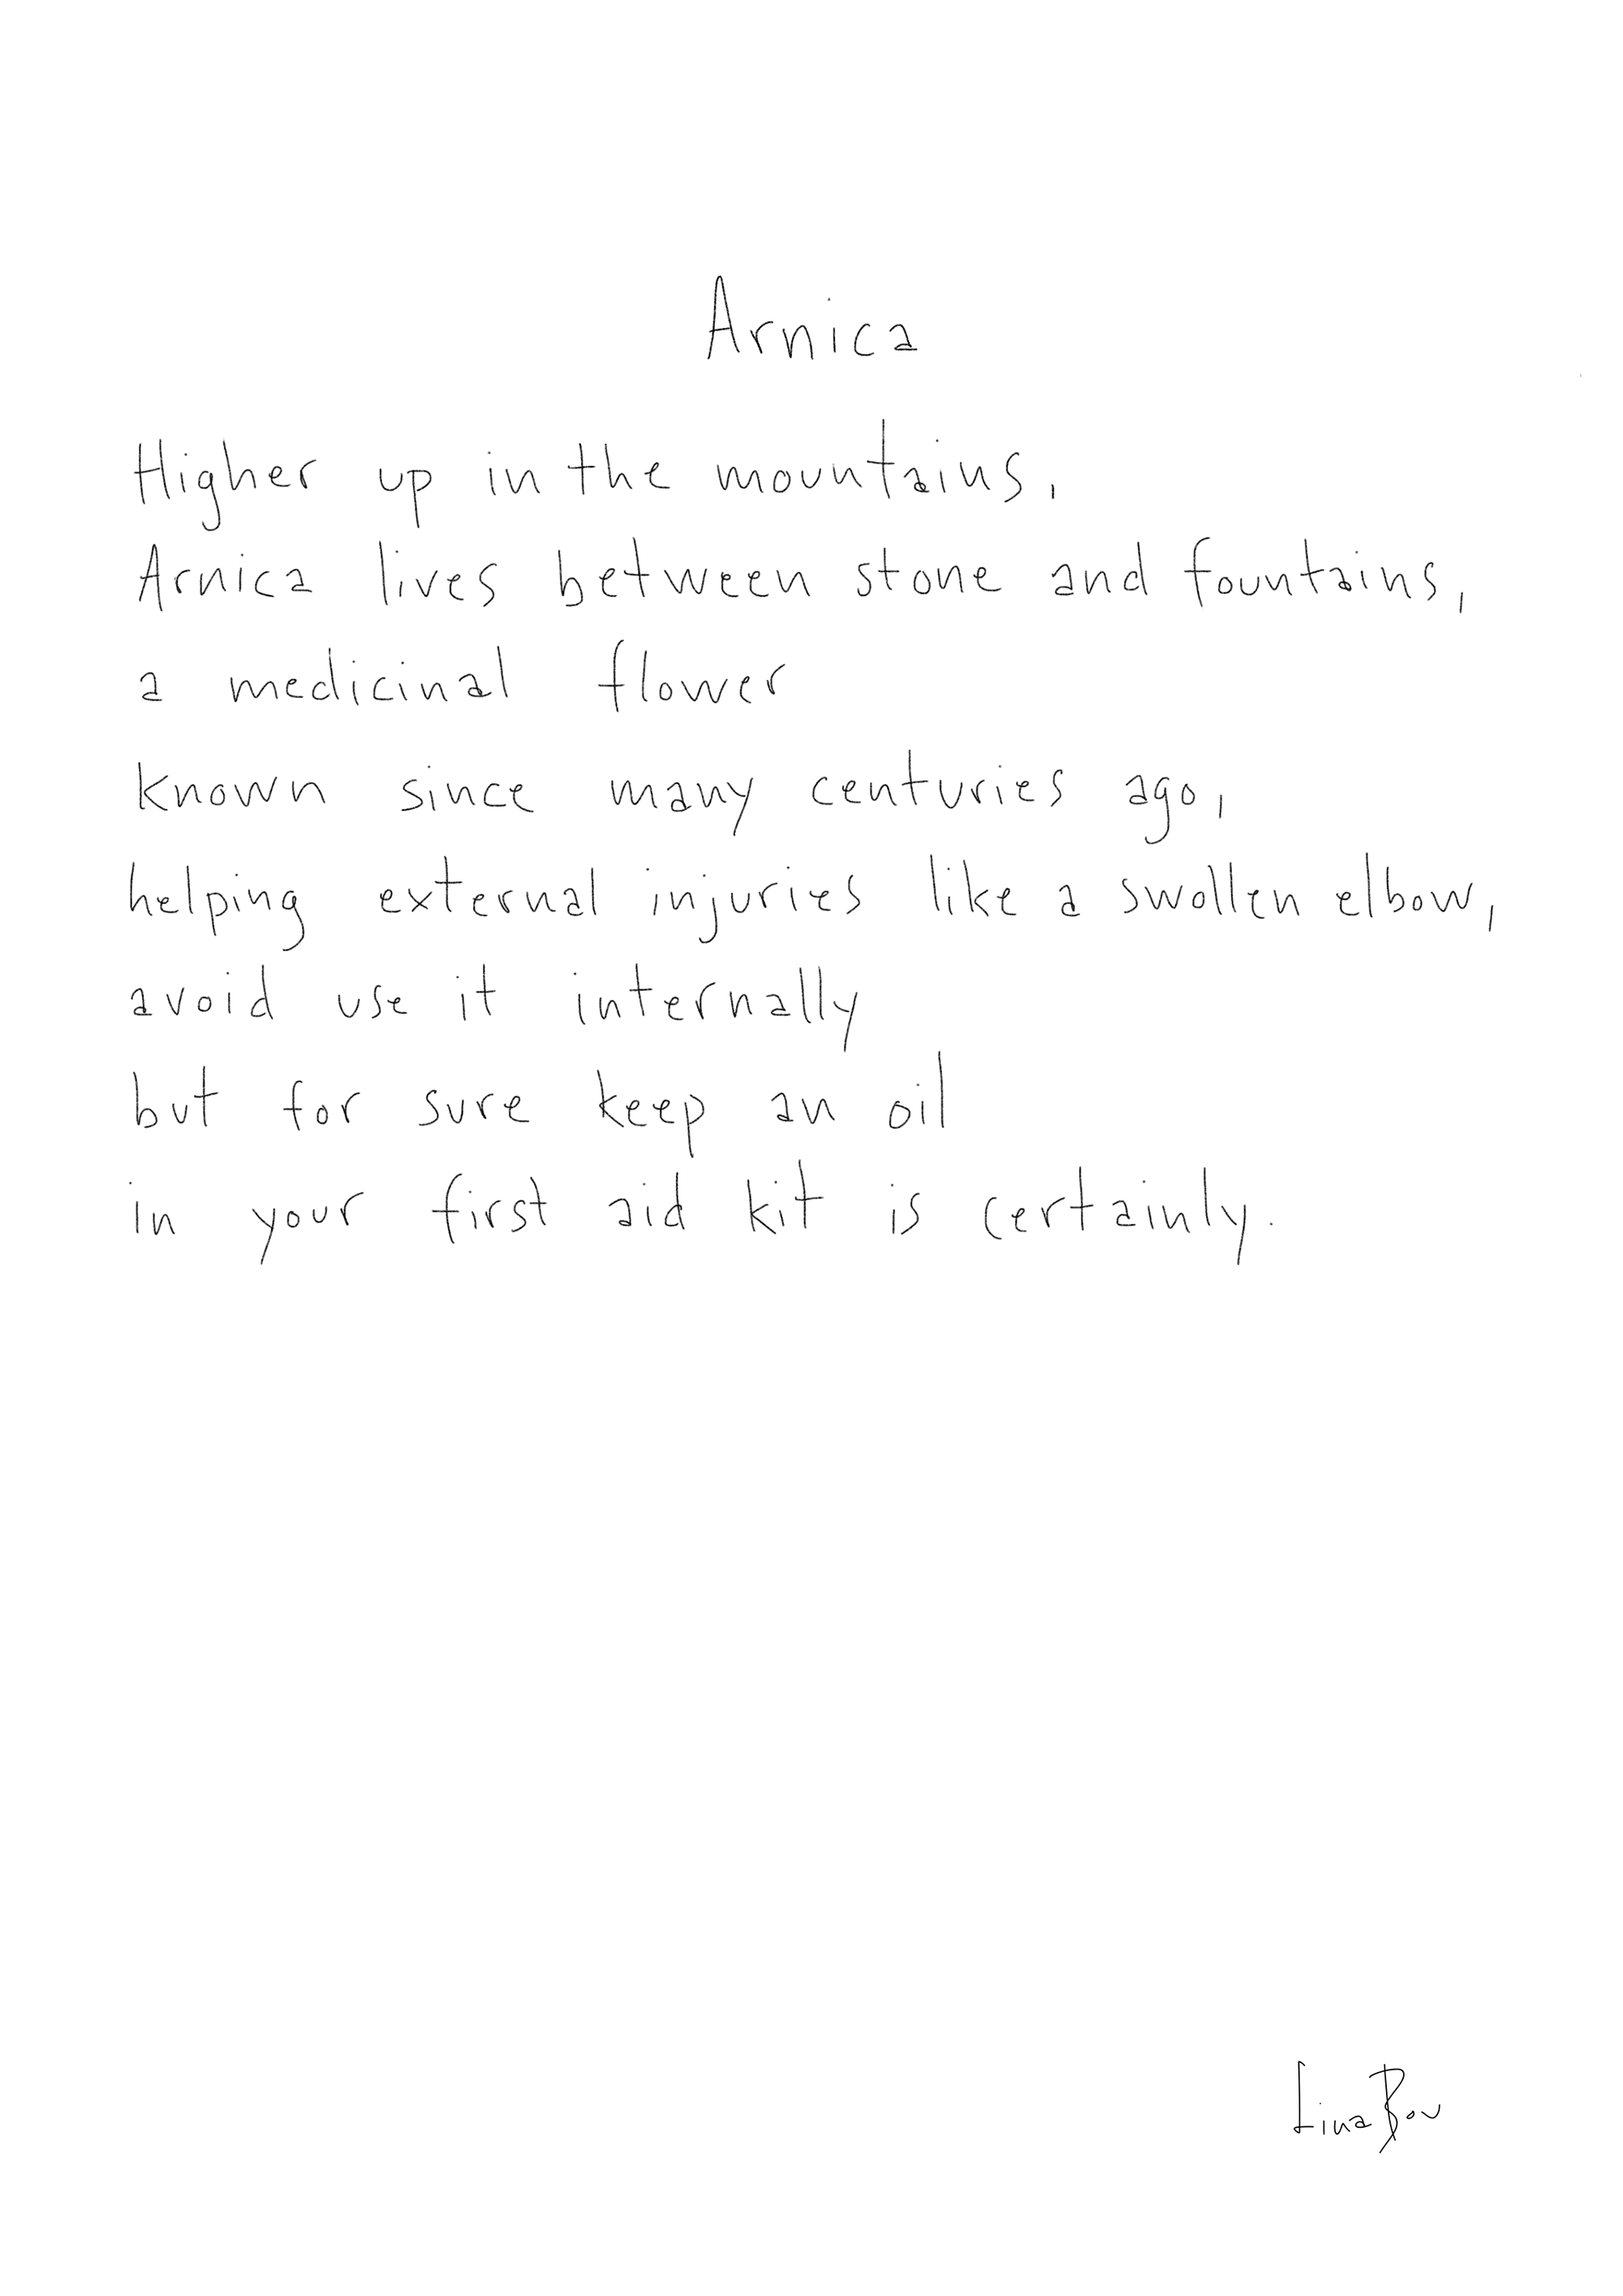 Arnica
Higher up in the mountains,
Arnica lives between stone and fountains,
a medicinal flower
known since many centuries ago,
helping external injuries like a swollen elbow,
avoid use it internally
but for sure keep an oil
in your first aid kit is certainly.
Lina Bou